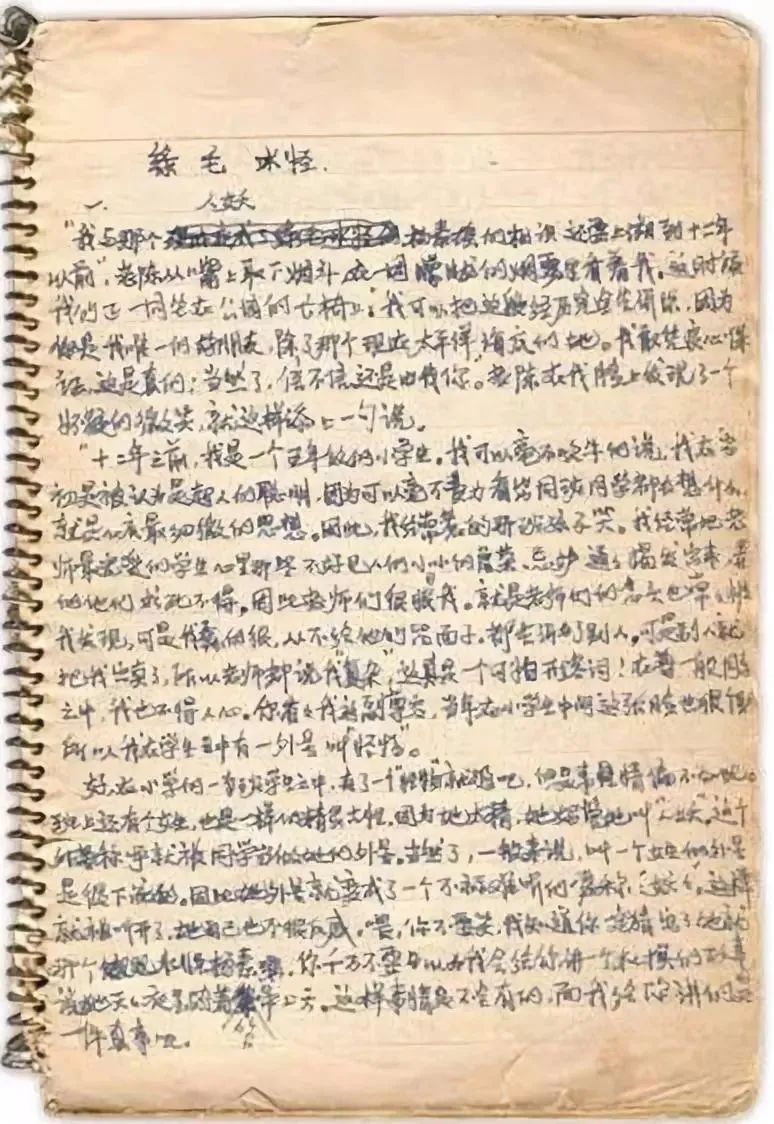 绿毛水怪
一、 人妖
“我与那个杨素瑶的相识还要上溯到十二年
以前”,老陈从嘴上取下烟斗,在一团朦胧的烟雾里看着我。这时候
我们正一同坐在公园的长椅上:我可以把这段经历完全告诉你,因为
你是我唯一的好朋友,除了那个现在太平洋海底的她。我敢凭良心保
证,这是真的;当然了,信不信还是由你”。老陈在我脸上发现了一个
怀疑的微笑,就这样添上一句说。
“十二年之前,我是一个五年级的小学生。我可以毫不吹牛的说,我在当
初是被认为是超人的聪明,因为可以毫不费力看出同班同学都在想什么,
就是心底最细微的思想。因此,我经常惹的班孩子笑。我经常把老
师最宠爱的学生心里那些不好见人们小小的虚荣、忌妒通通揭发出来,着
他们求死不得。因此老师们很恨我。就是老师们的念头也常常被
我发现,可是我蠢的很,从不给他们留面子,都告诉了别人。可是别人就
把我出卖了,所以老师都说我“复杂”,这真是一个可怕形容词!在着一般同学
之中,我也不得人心。你看看我这副尊容,当年在小学生中间这张脸也很
所以我在学生中有一外号叫“怪物”。
好,在小学的一班学生之中,有了一个“怪物”就够吧,但是事情偏不如此。
班上还有个女生,也是一样的精灵古怪。因为她太精,她妈管她叫“人妖”。这个
称呼就被同学当做她的外号。当然了,一般来说,叫一个女生的外号
是很下流的。因此她外号就变成了一个不算难听的昵称“妖妖”。这样
就叫开了,她自己也不很反感。喂,你不要笑,我知道你一定猜出了她就
那个水怪杨素瑶。你千万不要以为我会给你讲一个杜撰的故事
说她天天夜里骑着笤帚上天。这样事情是不会有的,而我给你讲的是
一件真事呢。